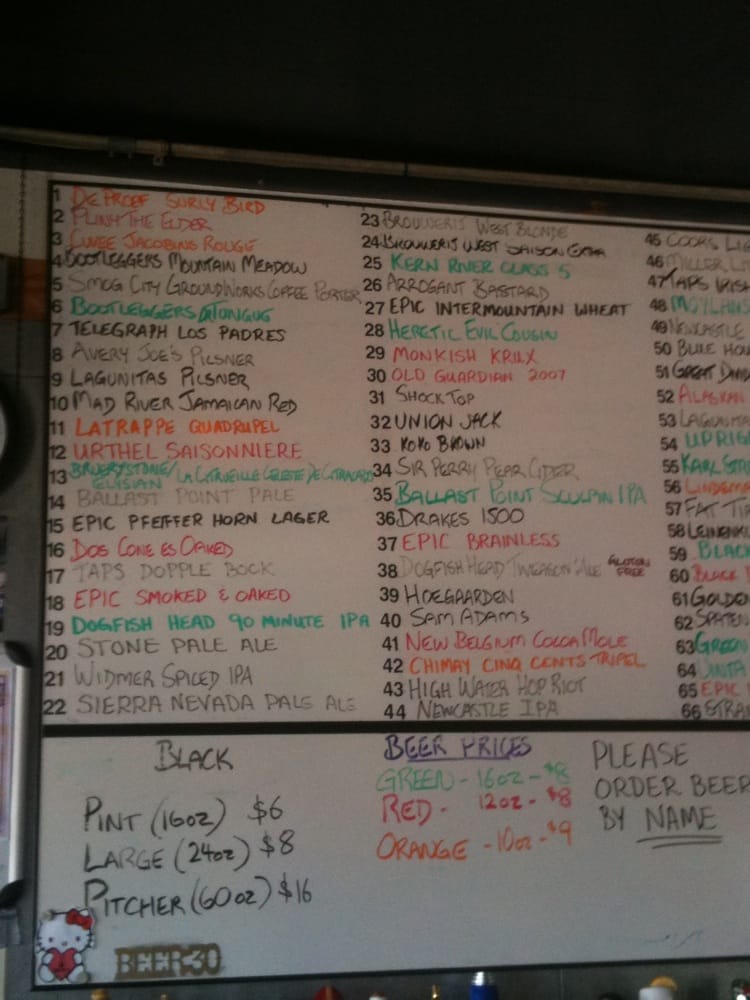 1 DE PROEF SURLY BIRD
2 PLINY THE ELDER
3 CUVEE JACOBINS ROUGE
4 BOOTLEGGERS MOUNTAIN MEADOW
5 SMOG CITY GROUNDWORKS COFFEE PORTER
6 BOOTLEGGERS
7 TELEGRAPH LOS PADRES
8 AVERY JOE'S PILSNER
9 LAGUNITAS PILSNER
10 MAD RIVER JAMAICAN RED
11 LATRAPPE QUADRUPEL
12 URTHEL SAISONNIERE
13 BRUERY STONE/ELYSIAN LA CITRUEILLE CELESTE DE CITRACADO
14 BALLAST POINT PALE
15 EPIC PFEIFFER HORN LAGER
16 DOS CONE ES OAKED
17 TAPS DOPPLE BOCK
18 EPIC SMOKED & OAKED
19 DOGFISH HEAD 90 MINUTE IPA
20 STONE PALE ALE
21 WIDMER SPICED IPA
22 SIERRA NEVADA PALE ALE
23 BROUWERIJ WEST BLONDE
24 BROUWERIJ WEST SAISON EXTRA
25 KERN RIVER CLASS 5
26 ARROGANT BASTARD
27 EPIC INTERMOUNTAIN WHEAT
28 HERETIC EVIL COUSIN
29 MONKISH KRUX
30 OLD GUARDIAN 2007
31 SHOCK TOP
32 UNION JACK
33 KOKO BROWN
34 SIR PERRY PEAR CIDER
35 BALLAST POINT SCULPIN IPA
36 DRAKES 1500
37 EPIC BRAINLESS
38 DOGFISH HEAD TWEASON'ALE GLUTEN FREE
39 HOEGAARDEN
40 SAM ADAMS
41 NEW BELGIUM COCOA MOLE
42 CHIMAY CINQ CENTS TRIPEL
43 HIGH WATER HOP RIOT
44 NEWCASTLE IPA
45 COORS
46 MILLER
47 TAPS IRISH
48
49 NEWCASTLE
50 BLUE
51 GREAT
52 ALASKAN
53
54
55 KARL
56
57 FAT
58
59 BLACK
60 BLACK
61 GOLDEN
62 SPATEN
63 GREEN
64
65 EPIC
66
BLACK
PINT (16oz) $6
LARGE (24oz) $8
PITCHER (60oz) $16
BEER PRICES
GREEN - 16oz - $8
RED - 12oz - $8
ORANGE - 10oz - $9
PLEASE
ORDER BEER
BY NAME
BEER:30